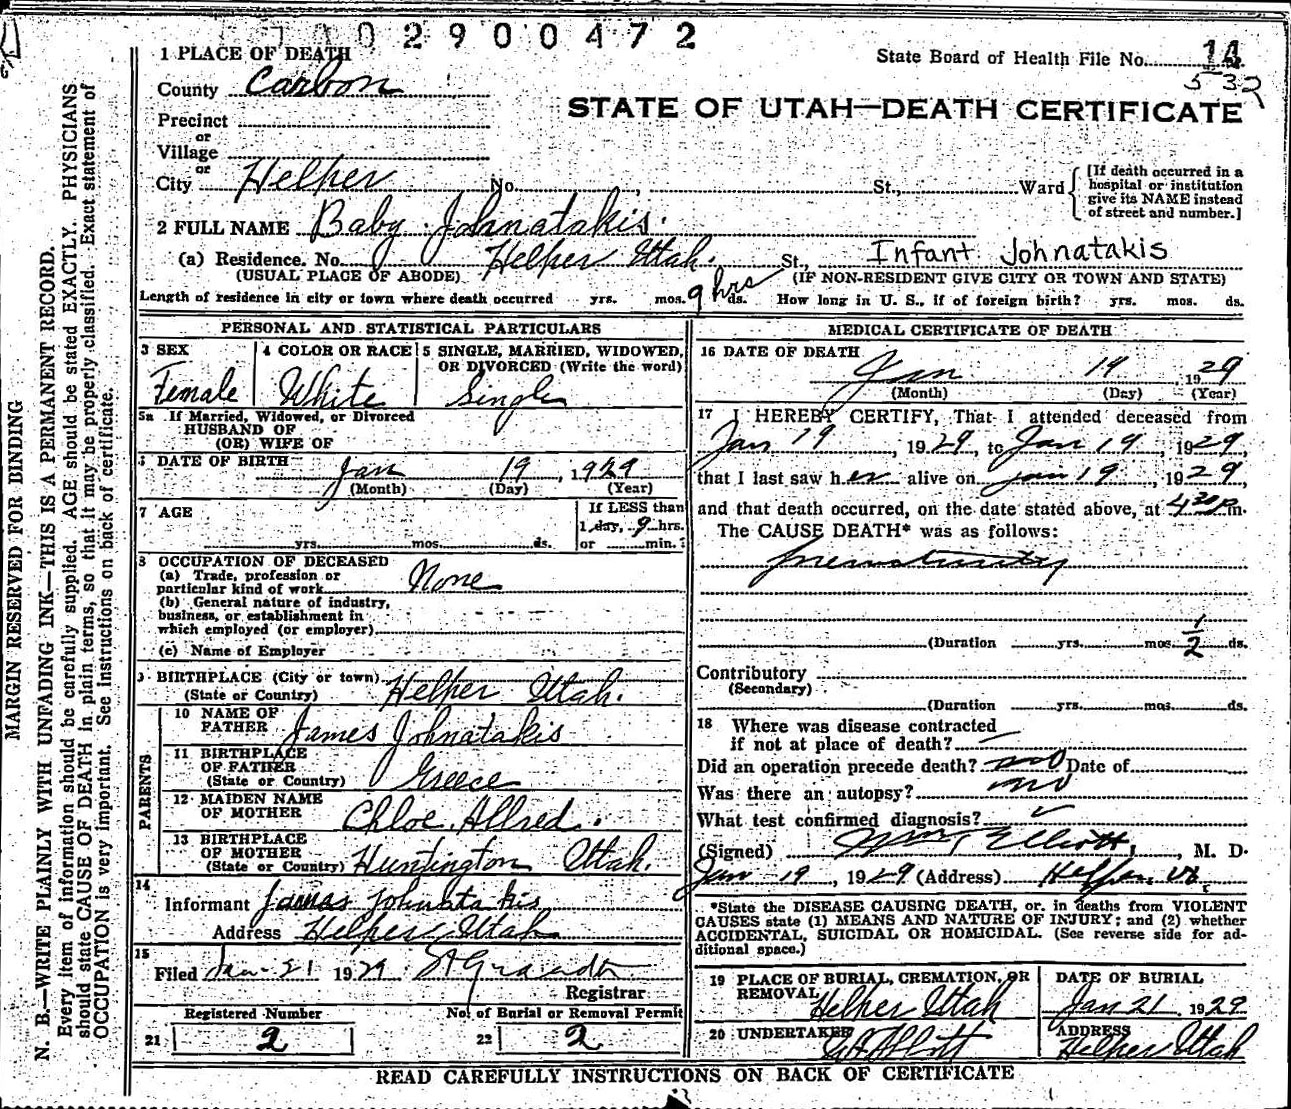 0 2 9 0 0 4 7 2
1 PLACE OF DEATH
State Board of Health File No. 14
532
County Carbon
STATE OF UTAH—DEATH CERTIFICATE
Precinct
or
Village
or
City Helper No. , St., Ward
[If death occurred in a hospital or institution give its NAME instead of street and number.]
2 FULL NAME Baby Johnatakis.
Infant Johnatakis
(a) Residence. No. Helper Utah. St.,
(USUAL PLACE OF ABODE) (IF NON-RESIDENT GIVE CITY OR TOWN AND STATE)
Length of residence in city or town where death occurred yrs. mos. 9 hrs ds. How long in U. S., if of foreign birth? yrs. mos. ds.
PERSONAL AND STATISTICAL PARTICULARS
3 SEX
Female
4 COLOR OR RACE
White
5 SINGLE, MARRIED, WIDOWED, OR DIVORCED (Write the word)
Single
5a If Married, Widowed, or Divorced
HUSBAND OF
(OR) WIFE OF
DATE OF BIRTH Jan 19, 1929
(Month) (Day) (Year)
7 AGE
yrs. mos. ds.
If LESS than
1 day, 9 hrs.
or min.
8 OCCUPATION OF DECEASED
(a) Trade, profession or
particular kind of work None
(b) General nature of industry,
business, or establishment in
which employed (or employer)
(c) Name of Employer
9 BIRTHPLACE (City or town) Helper Utah.
(State or Country)
PARENTS
10 NAME OF
FATHER James Johnatakis
11 BIRTHPLACE
OF FATHER
(State or Country) Greece
12 MAIDEN NAME
OF MOTHER Chloe Allred.
13 BIRTHPLACE
OF MOTHER
(State or Country) Huntington Utah.
14
Informant James Johnatakis
Address Helper Utah
15
Filed Jan-21 1929
Registrar
Registered Number
21 2
No. of Burial or Removal Permit
22 2
MEDICAL CERTIFICATE OF DEATH
16 DATE OF DEATH
Jan 19, 1929
(Month) (Day) (Year)
17 I HEREBY CERTIFY, That I attended deceased from
Jan 19, 1929, to Jan 19, 1929,
that I last saw her alive on Jan 19, 1929,
and that death occurred, on the date stated above, at 4 30 p m.
The CAUSE DEATH* was as follows:
Prematurity
(Duration yrs. mos. 1/2 ds.
Contributory
(Secondary)
(Duration yrs. mos. ds.
18 Where was disease contracted
if not at place of death?
Did an operation precede death? no Date of
Was there an autopsy? no
What test confirmed diagnosis?
(Signed) Elliott, M. D.
Jan 19, 1929 (Address) Helper Ut.
*State the DISEASE CAUSING DEATH, or, in deaths from VIOLENT
CAUSES state (1) MEANS AND NATURE OF INJURY; and (2) whether
ACCIDENTAL, SUICIDAL OR HOMICIDAL. (See reverse side for ad-
ditional space.)
19 PLACE OF BURIAL, CREMATION, OR
REMOVAL Helper Utah
DATE OF BURIAL
Jan 21 1929
20 UNDERTAKER
ADDRESS
Helper Utah
READ CAREFULLY INSTRUCTIONS ON BACK OF CERTIFICATE
MARGIN RESERVED FOR BINDING
N. B.—WRITE PLAINLY WITH UNFADING INK—THIS IS A PERMANENT RECORD.
Every item of information should be carefully supplied. AGE should be stated EXACTLY. PHYSICIANS
should state CAUSE OF DEATH in plain terms, so that it may be properly classified. Exact statement of
OCCUPATION is very important. See instructions on back of certificate.